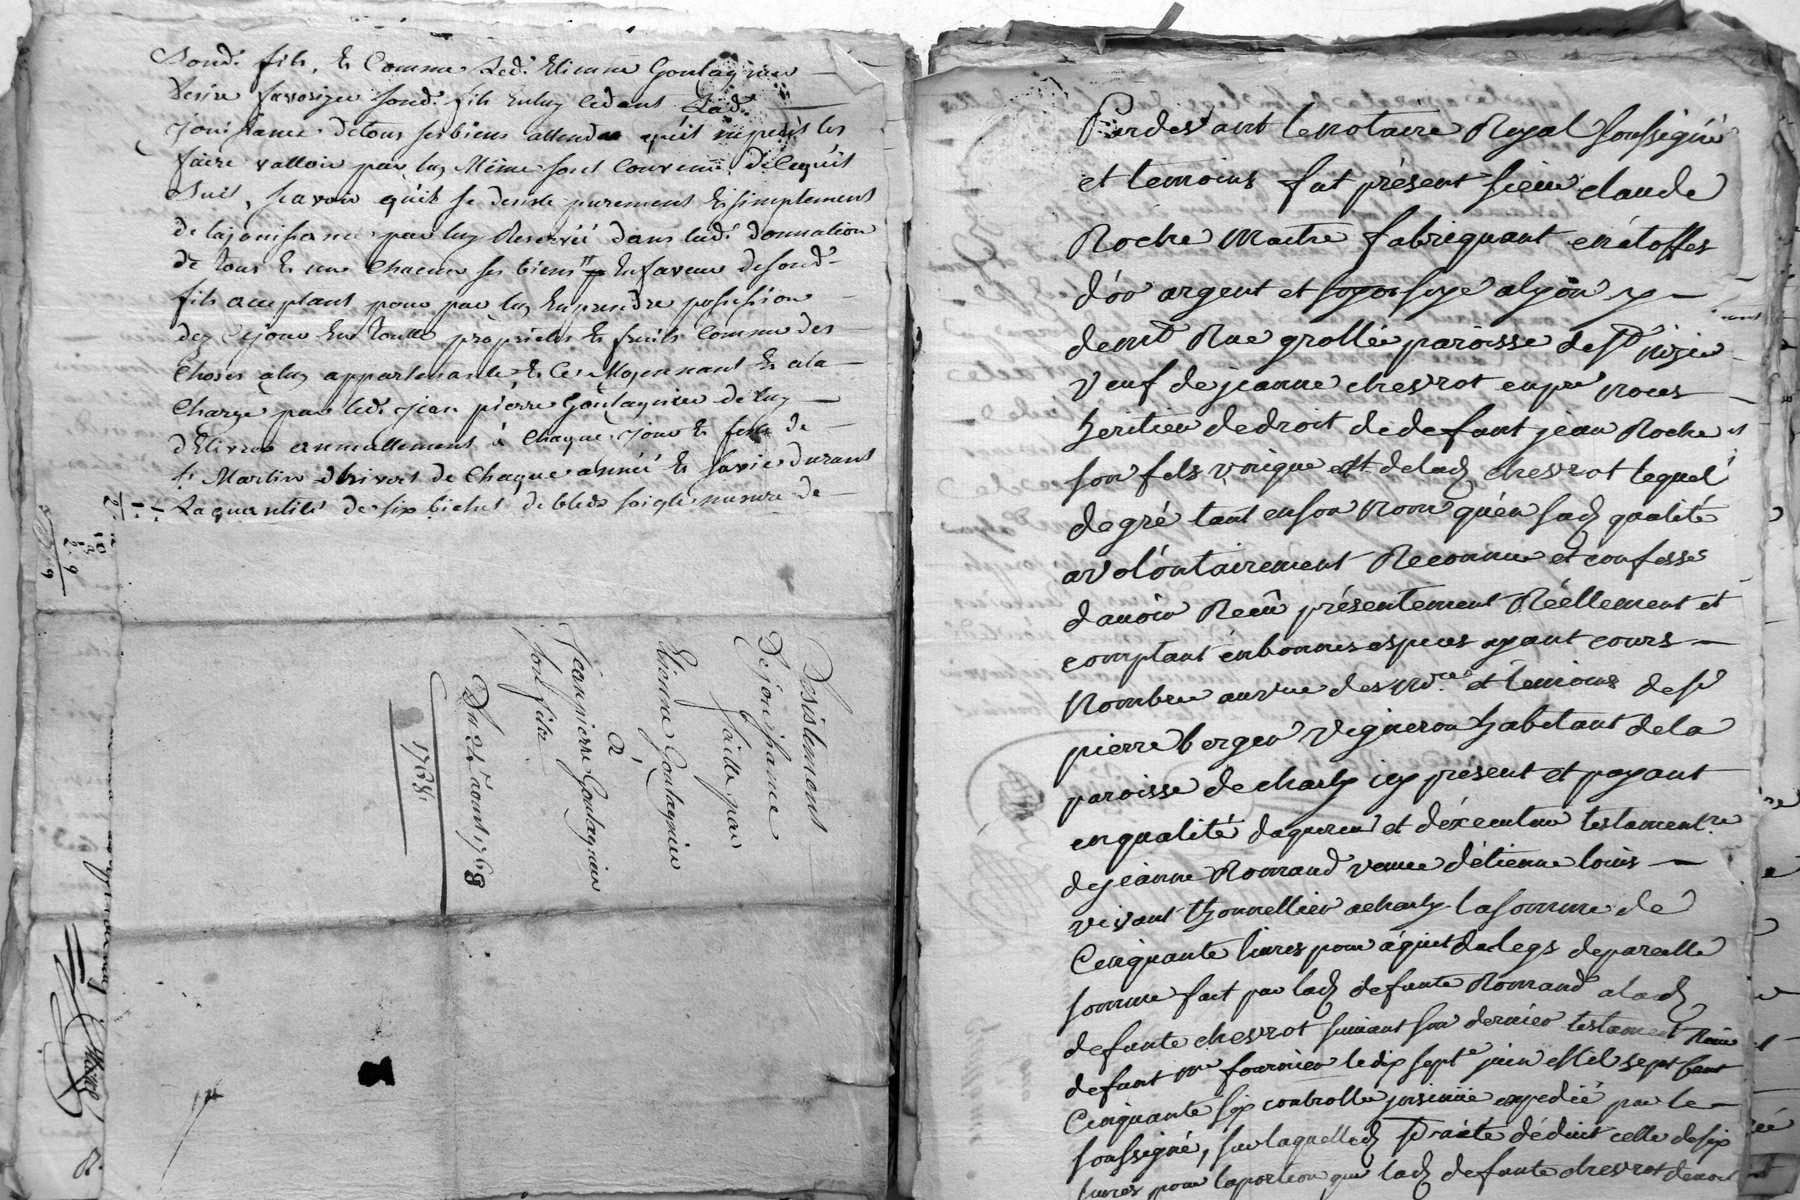 Sond. fils, Et Comme Led. Etienne Goutagnieu
Desire favoriser sond. fils En luy Cedant Lad.
Jouissance de tous ses biens attendu qu'il ne peut les
faire valloir par luy Même sont Convenu de Ce qu'il
Suit, Scavoir qu'il se desiste purement Et simplement
de la jouissance par luy Reservéé dans lad. donnation
de tous Et un Chacun ses biens En faveur de sond.
fils acceptant pour par luy En prendre possession
dez Ce jour En toutte propriété Et fruits Comme des
Choses a luy appartenante Et Ce Moyennant Et a la
Charge par led. Jean pierre Goutagnieu de luy
délivrer annuellement à Chaque jour Et feste de
St Martin d'hivert de Chaque année Et sa vie durant
La quantité de six bichet de bled seigle mesure de
Desistement
De jouissance
faitte par
Etienne Goutagnieu
à
Jean pierre Goutagnieu
son fils
Du 21 aoust 1768
1768
Pardevant le notaire Royal soussigné
et temoins fut présent sieur claude
Roche Maitre fabriquant en étoffes
d'or argent et soye a lyon y
demt Rue grollée paroisse de St nizier
veuf de jeanne chevrot en pre noces
heritier de droit de defunt jean Roche
son fils unique et de lad. chevrot lequel
de gré tant en son nom qu'en sad. qualité
a volontairement Reconnu et confessé
d'avoir Reçu présentement Réellement et
comptant én bonnes espèces ayant cours
Nombré au vue des Nre et temoins de Sr
pierre berger Vigneron habitant de la
paroisse de charly icy present et payant
en qualité d'aquereur et d'éxecuteur testamentre
de jeanne Romand veuve d'étienne louis
vivant thonnellier a charly la somme de
Cinquante livres pour aquit du legs de pareille
somme fait par lad. defunte Romand a lad.
defunte chevrot suivant son dernier testament Reçu
defunt me fournier le dix sept juin Mil sept Cent
Cinquante six controllé insinué expedié par le
soussigné, sur laquelle distraite déduit celle de six
livres pour la portion que lad. defunte chevrot devoit